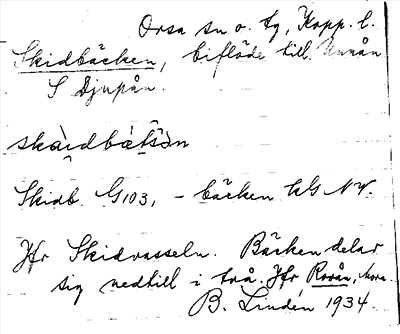 Orsa sn o. tg, Kopp. l.
Skidbäcken, biflöde till Unnån
S Djupån.
skàidbæ̀tsən
Skidb. G103, - bäcken kG NV.
Jfr Skidvasseln. Bäcken delar
sig nedtill i två. Jfr Rovån, Mora.
B. Lindén 1934.